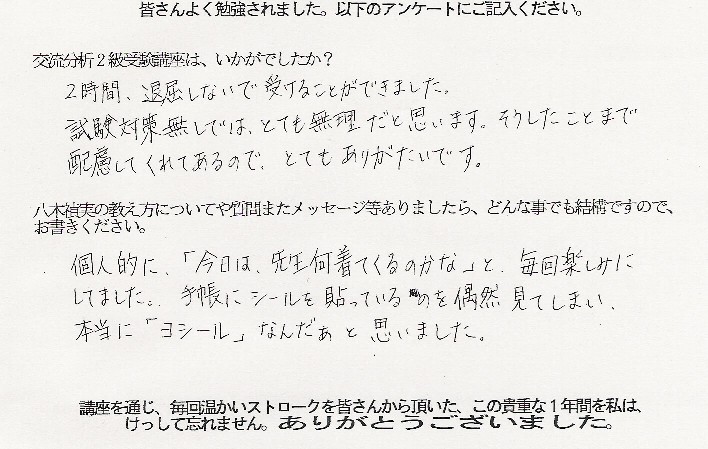 皆さんよく勉強されました。以下のアンケートにご記入ください。
交流分析２級受験講座は、いかがでしたか？
２時間、退屈しないで受けることができました。
試験対策無しでは、とても無理だと思います。そうしたことまで
配慮してくれてあるので、とてもありがたいです。
八木禎実の教え方についてや質問またメッセージ等ありましたら、どんな事でも結構ですので、
お書きください。
個人的に、「今日は、先生何着てくるのかな」と、毎回楽しみに
してました。手帳にシールを貼っているのを偶然見てしまい、
本当に「ヨシール」なんだぁと思いました。
講座を通じ、毎回温かいストロークを皆さんから頂いた、この貴重な１年間を私は、
けっして忘れません。ありがとうございました。